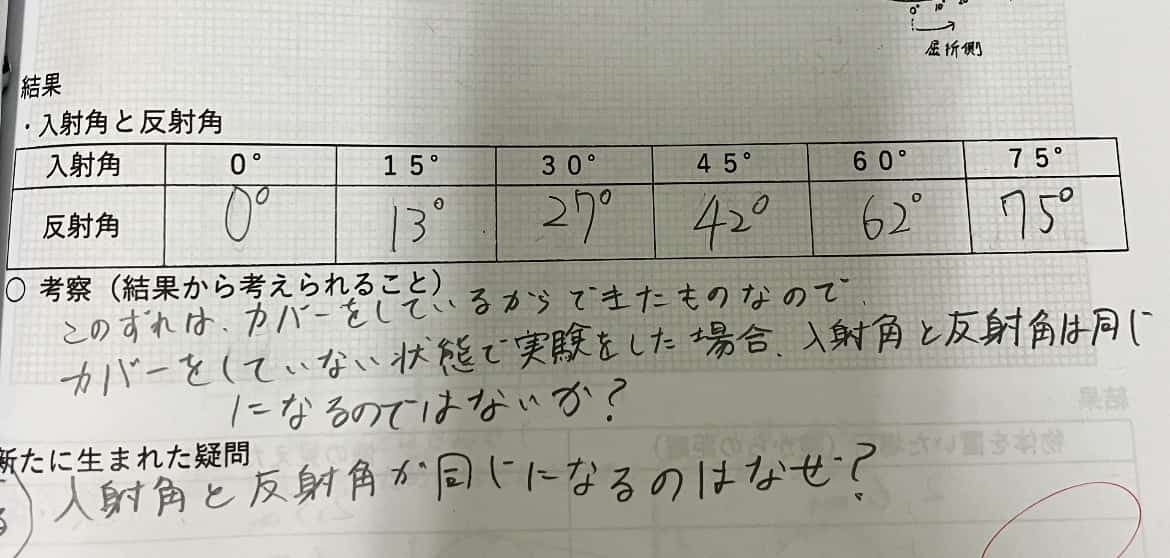 0° 10° 20
屈折側
結果
・入射角と反射角
入射角 0° 15° 30° 45° 60° 75°
反射角 0° 13° 27° 42° 62° 75°
○ 考察（結果から考えられること）
このずれは、カバーをしているからできたものなので、
カバーをしていない状態で実験をした場合、入射角と反射角は同じ
になるのではないか？
新たに生まれた疑問
入射角と反射角が同じになるのはなぜ？
る
結果
物体を置いた場
からの距離）